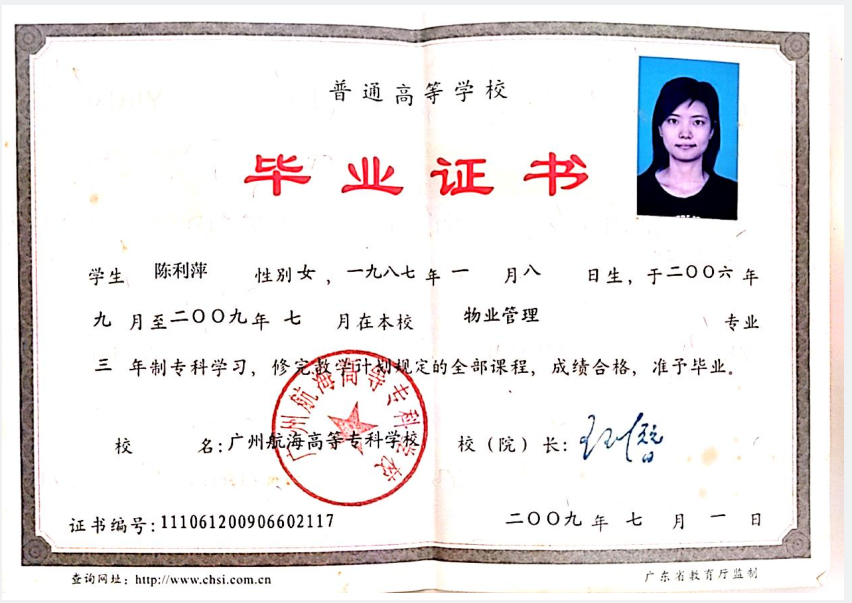 普通高等学校
毕业证书
学生 陈利萍 性别女，一九八七年一月八日生，于二〇〇六年
九月至二〇〇九年七月在本校 物业管理 专业
三年制专科学习，修完教学计划规定的全部课程，成绩合格，准予毕业。
校 名：广州航海高等专科学校 校（院）长：
广州航海高等专科学校
证书编号：111061200906602117 二〇〇九年七月一日
查询网址：http://www.chsi.com.cn 广东省教育厅监制